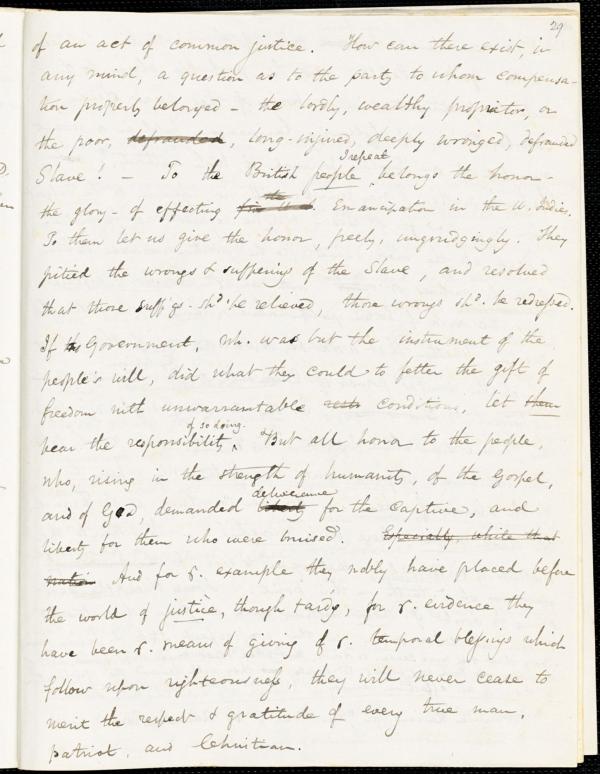 29
of an act of common justice. How can there exist, in
any mind, a question as to the party to whom compensa-
tion properly belonged - the lordly, wealthy proprietor, or
the poor, defrauded, long-injured, deeply wronged, defrauded
Slave! - To the British people, I repeat, belongs the honor -
the glory - of effecting the Emancipation in the W. Indies.
To them let us give the honor, freely, ungrudgingly. They
pitied the wrongs & sufferings of the Slave, and resolved
that those suffgs. shd. be relieved, those wrongs shd. be redressed.
If the Government, wh. was but the instrument of the
people's will, did what they could to fetter the gift of
freedom with unwarrantable conditions, let them
bear the responsibility of so doing. But all honor to the people,
who, rising in the strength of humanity, of the Gospel,
and of God, demanded liberty deliverance for the captive, and
liberty for them who were bruised. Especially, while that
nation And for γ. example they nobly have placed before
the world of justice, though tardy, for γ. evidence they
have been γ. means of giving of γ. temporal blessings which
follow upon righteousness, they will never cease to
merit the respect & gratitude of every true man,
patriot, and Christian.